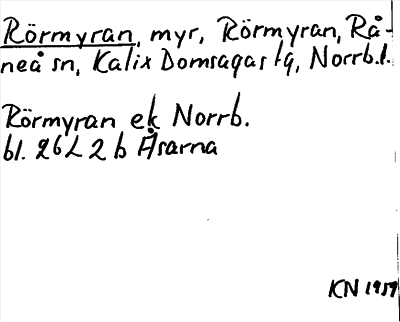 Rörmyran, myr, Rörmyran, Rå-
neå sn, Kalix Domsagas tg, Norrb.l.
Rörmyran ek Norrb.
bl. 26L 2b Åsarna
KN 1959